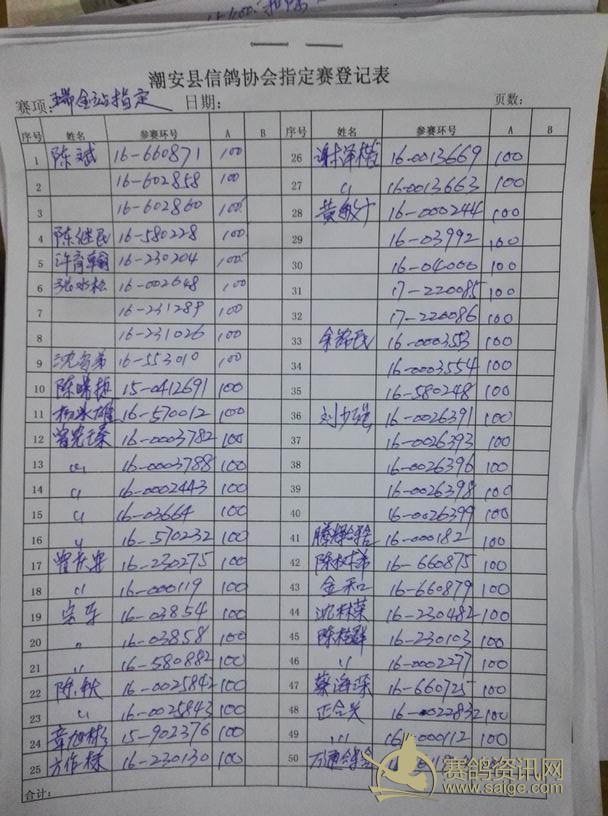 潮安县信鸽协会指定赛登记表
赛项: 瑞金站指定 日期: 页数:
序号 姓名 参赛环号 A B 序号 姓名 参赛环号 A B
1 陈斌 16-660871 100 26 谢泽楷 16-0013669 100
2 16-602858 100 27 〃 16-0013663 100
3 16-602860 100 28 16-000244 100
4 陈继民 16-580228 100 29 16-03992 100
5 许育翰 16-230204 100 30 16-04000 100
6 张水松 16-002648 100 31 17-220085 100
7 16-231289 100 32 17-220086 100
8 16-231026 100 33 16-000353 100
9 16-553010 100 34 16-0003554 100
10 15-0412691 100 35 16-580248 100
11 16-570012 100 36 刘少强 16-0026391 100
12 16-0003782 100 37 16-0026393 100
13 〃 16-0003788 100 38 16-0026396 100
14 〃 16-0002443 100 39 16-0026398 100
15 〃 16-03664 100 40 16-0026399 100
16 〃 16-570232 100 41 16-000182 100
17 16-230275 100 42 陈树弟 16-660875 100
18 〃 16-000119 100 43 金和 16-660879 100
19 宗车 16-03854 100 44 沈林荣 16-230482 100
20 〃 16-03858 100 45 陈桂群 16-230103 100
21 〃 16-580882 100 46 〃 16-0002277 100
22 陈钦 16-0025842 100 47 蔡海深 16-660725 100
23 〃 16-0025843 100 48 正合兴 16-0022832 100
24 章旭彬 15-902376 100 49 〃 16-000112 100
25 方作标 16-230130 100 50 万通鸽舍
合计:
赛鸽资讯网
www.saige.com